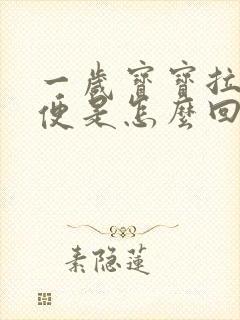 一歲寶寶拉
便是怎麼回
素隐蓮